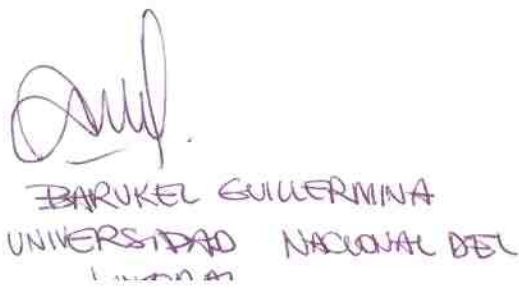 BARUKEL GUILLERMINA
UNIVERSIDAD NACIONAL DEL